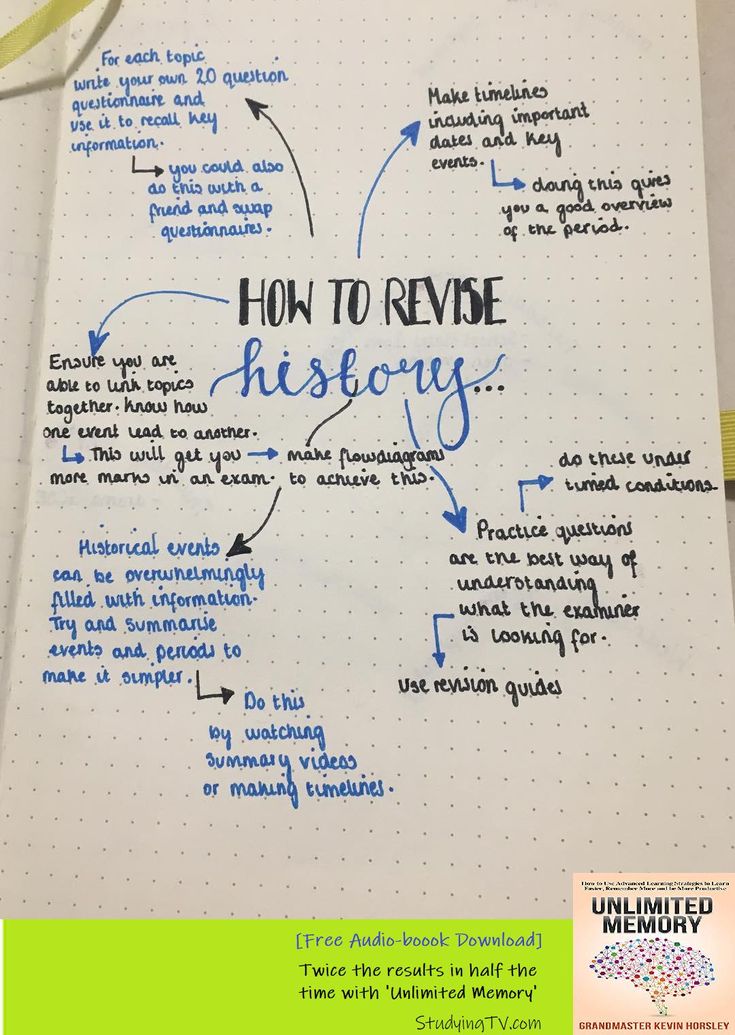 For each topic
write your own 20 question
questionnaire and
use it to recall key
information.
you could also
do this with a
friend and swap
questionnaires.
Make timelines
including important
dates and key
events.
doing this gives
you a good overview
of the period.
HOW TO REVISE
history...
Ensure you are
able to link topics
together. Know how
one event lead to another.
This will get you
more marks in an exam.
make flowdiagrams
to achieve this.
do these under
timed conditions
Practice questions
are the best way of
understanding
what the examiner
is looking for.
use revision guides
Historical events
can be overwhelmingly
filled with information.
Try and summarise
events and periods to
make it simpler.
Do this
by watching
summary videos
or making timelines.
[Free Audio-boook Download]
Twice the results in half the
time with 'Unlimited Memory'
StudyingTV.com
How to Use Advanced Learning Strategies to Learn
Faster, Remember More and be More Productive
UNLIMITED
MEMORY
GRANDMASTER KEVIN HORSLEY